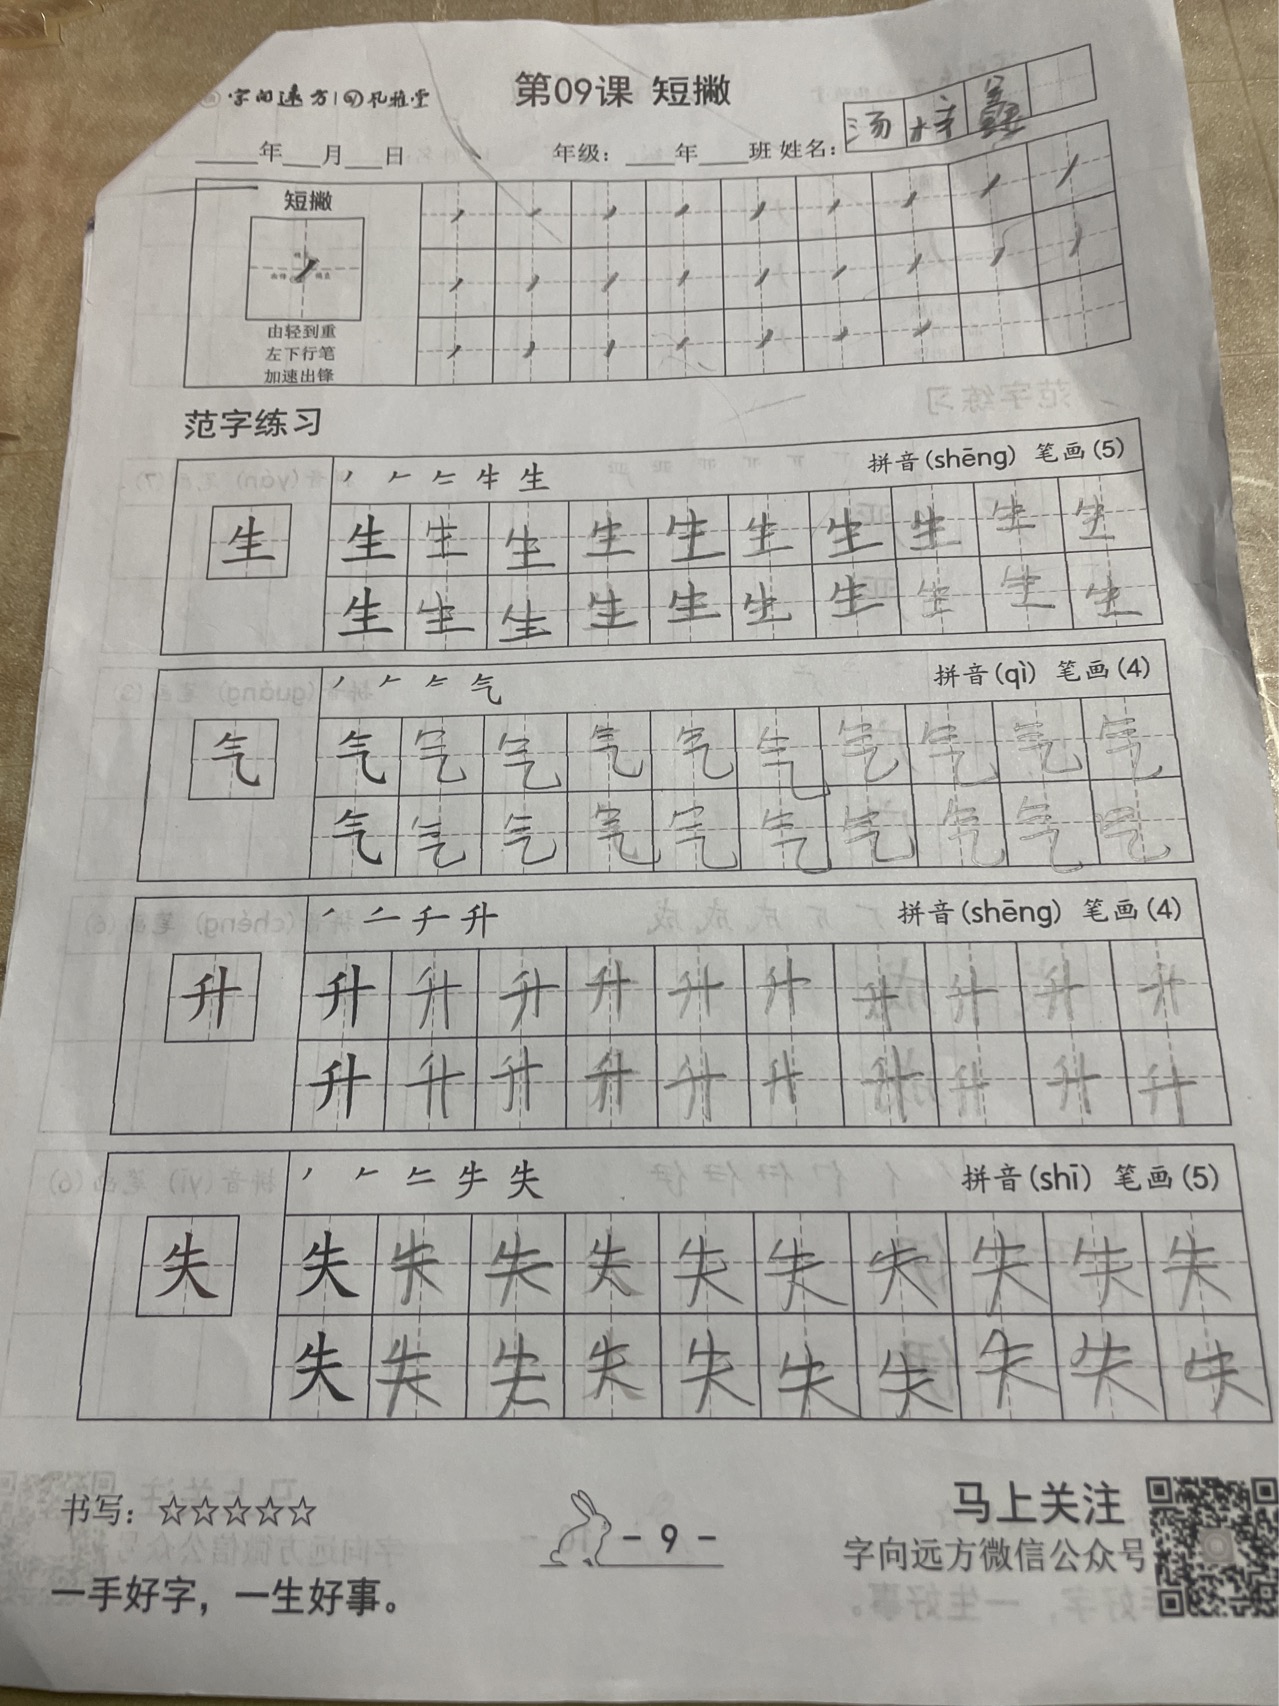 字向远方|孔雅堂
第09课 短撇
____年___月___日 年级：____年____班 姓名：汤梓鑫
短撇
由轻到重
左下行笔
加速出锋
范字练习
生 拼音(shēng) 笔画(5)
生 生 生 生 生 生 生 生 生 生 生
生 生 生 生 生 生 生 生 生 生
气 拼音(qì) 笔画(4)
气 气 气 气 气 气 气 气 气 气 气
气 气 气 气 气 气 气 气 气 气
升 拼音(shēng) 笔画(4)
升 升 升 升 升 升 升 升 升 升 升
升 升 升 升 升 升 升 升 升 升
失 拼音(shī) 笔画(5)
失 失 失 失 失 失 失 失 失 失 失
失 失 失 失 失 失 失 失 失 失
书写：☆☆☆☆☆
一手好字，一生好事。
- 9 -
马上关注
字向远方微信公众号